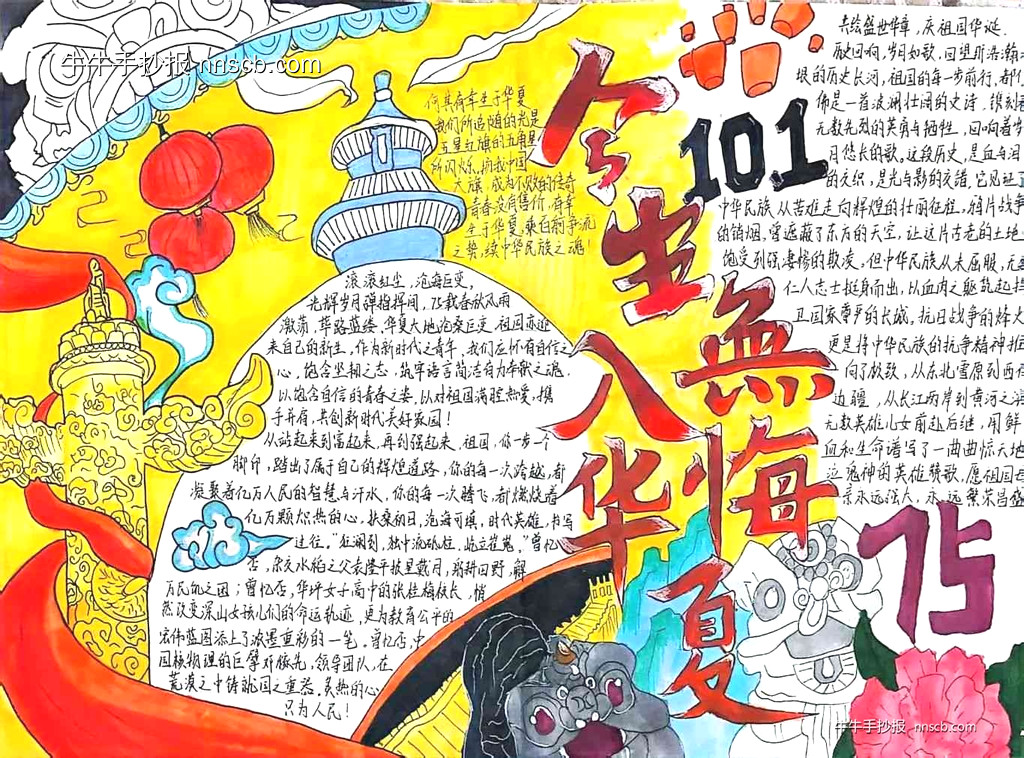 牛牛手抄报-nnscb.com
何其有幸生于华夏
我们所追随的光是
五星红旗的五角星
所闪烁,扬我中国
大旗,成为不败的传奇
青春没有售价,有幸
生于华夏,乘百舸争流
之势,续中华民族之魂!
今生無悔
入华夏
101
75
滚滚红尘,沧海巨变,
光辉岁月弹指挥间,乃载春秋风雨
激荡,筚路蓝缕,华夏大地沧桑巨变,祖国亦迎
来自己的新生,作为新时代之青年,我们应怀有自信之
心,饱含坚韧之志,筑牢语言简洁有力奉献之魂,
以饱含自信的青春之姿,以对祖国满腔热爱,携
手并肩,共创新时代美好家园!
从站起来到富起来,再到强起来,祖国,你一步一个
脚印,踏出了属于自己的辉煌道路,你的每一次跨越,都
凝聚着亿万人民的智慧与汗水,你的每一次腾飞,都燃烧着
亿万颗炽热的心,扶桑初日,沧海可填,时代英雄,书写
过往,"狂澜到,独中流砥柱,屹立崔嵬。"曾忆
否,杂交水稻之父袁隆平披星戴月,躬耕田野,解
万民饥之困;曾忆否,华坪女子高中的张桂梅校长,悄
然改变深山女孩儿们的命运轨迹,更为教育公平的
宏伟蓝图添上了浓墨重彩的一笔,曾忆否,中
国核物理的巨擘邓稼先,领导团队,在
荒漠之中铸就国之重器,炙热的心
只为人民!
共绘盛世华章,庆祖国华诞
历史回响,岁月如歌,回望那浩瀚
垠的历史长河,祖国的每一步前行,都仿
佛是一首波澜壮阔的史诗,镌刻着
无数先烈的英勇与牺牲,回响着岁
月悠长的歌,这段历史,是血与泪
的交织,是光与影的交错,它见证了
中华民族从苦难走向辉煌的壮丽征程,鸦片战争
的硝烟,曾遮蔽了东方的天空,让这片古老的土地
饱受列强凄惨的欺凌,但中华民族从未屈服,无数
仁人志士挺身而出,以血肉之躯筑起捍
卫国家尊严的长城,抗日战争的烽火
更是将中华民族的抗争精神推
向了极致,从东北雪原到西南
边疆,从长江两岸到黄河之滨
无数英雄儿女前赴后继,用鲜
血和生命谱写了一曲曲惊天地
泣鬼神的英雄赞歌,愿祖国母
亲永远强大,永远繁荣昌盛
牛牛手抄报 nnscb.com